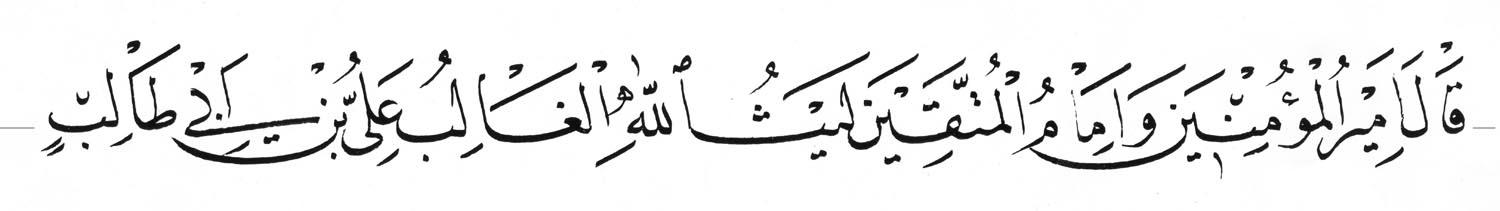 قَالَ اَمِيْرُ الْمُؤْمِنِّيْنَ وَاِمَامُ الْمُتَّقِيْنَ لَيْثُ اللّٰهِ الْغَالِبُ عَلِىُّ بْنُ اَبِيْ طَالِبٍ